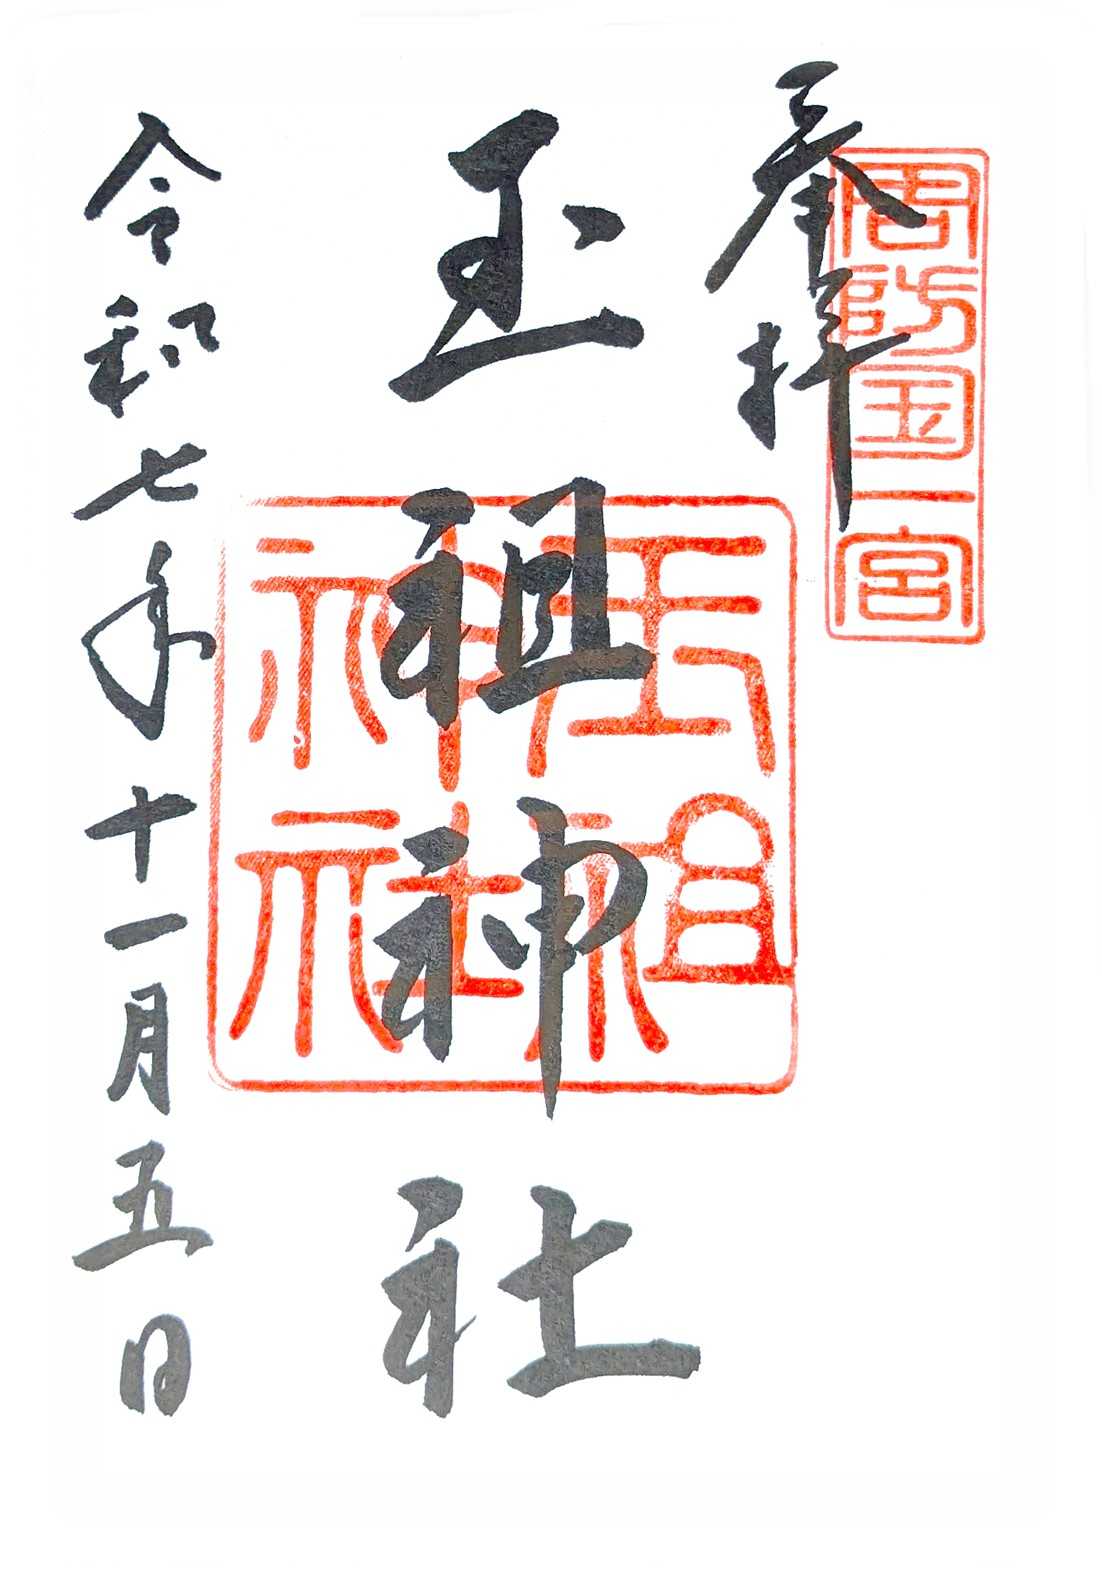 奉拝
周防国一宮
玉祖神社
玉祖
神社
令和七年十一月五日